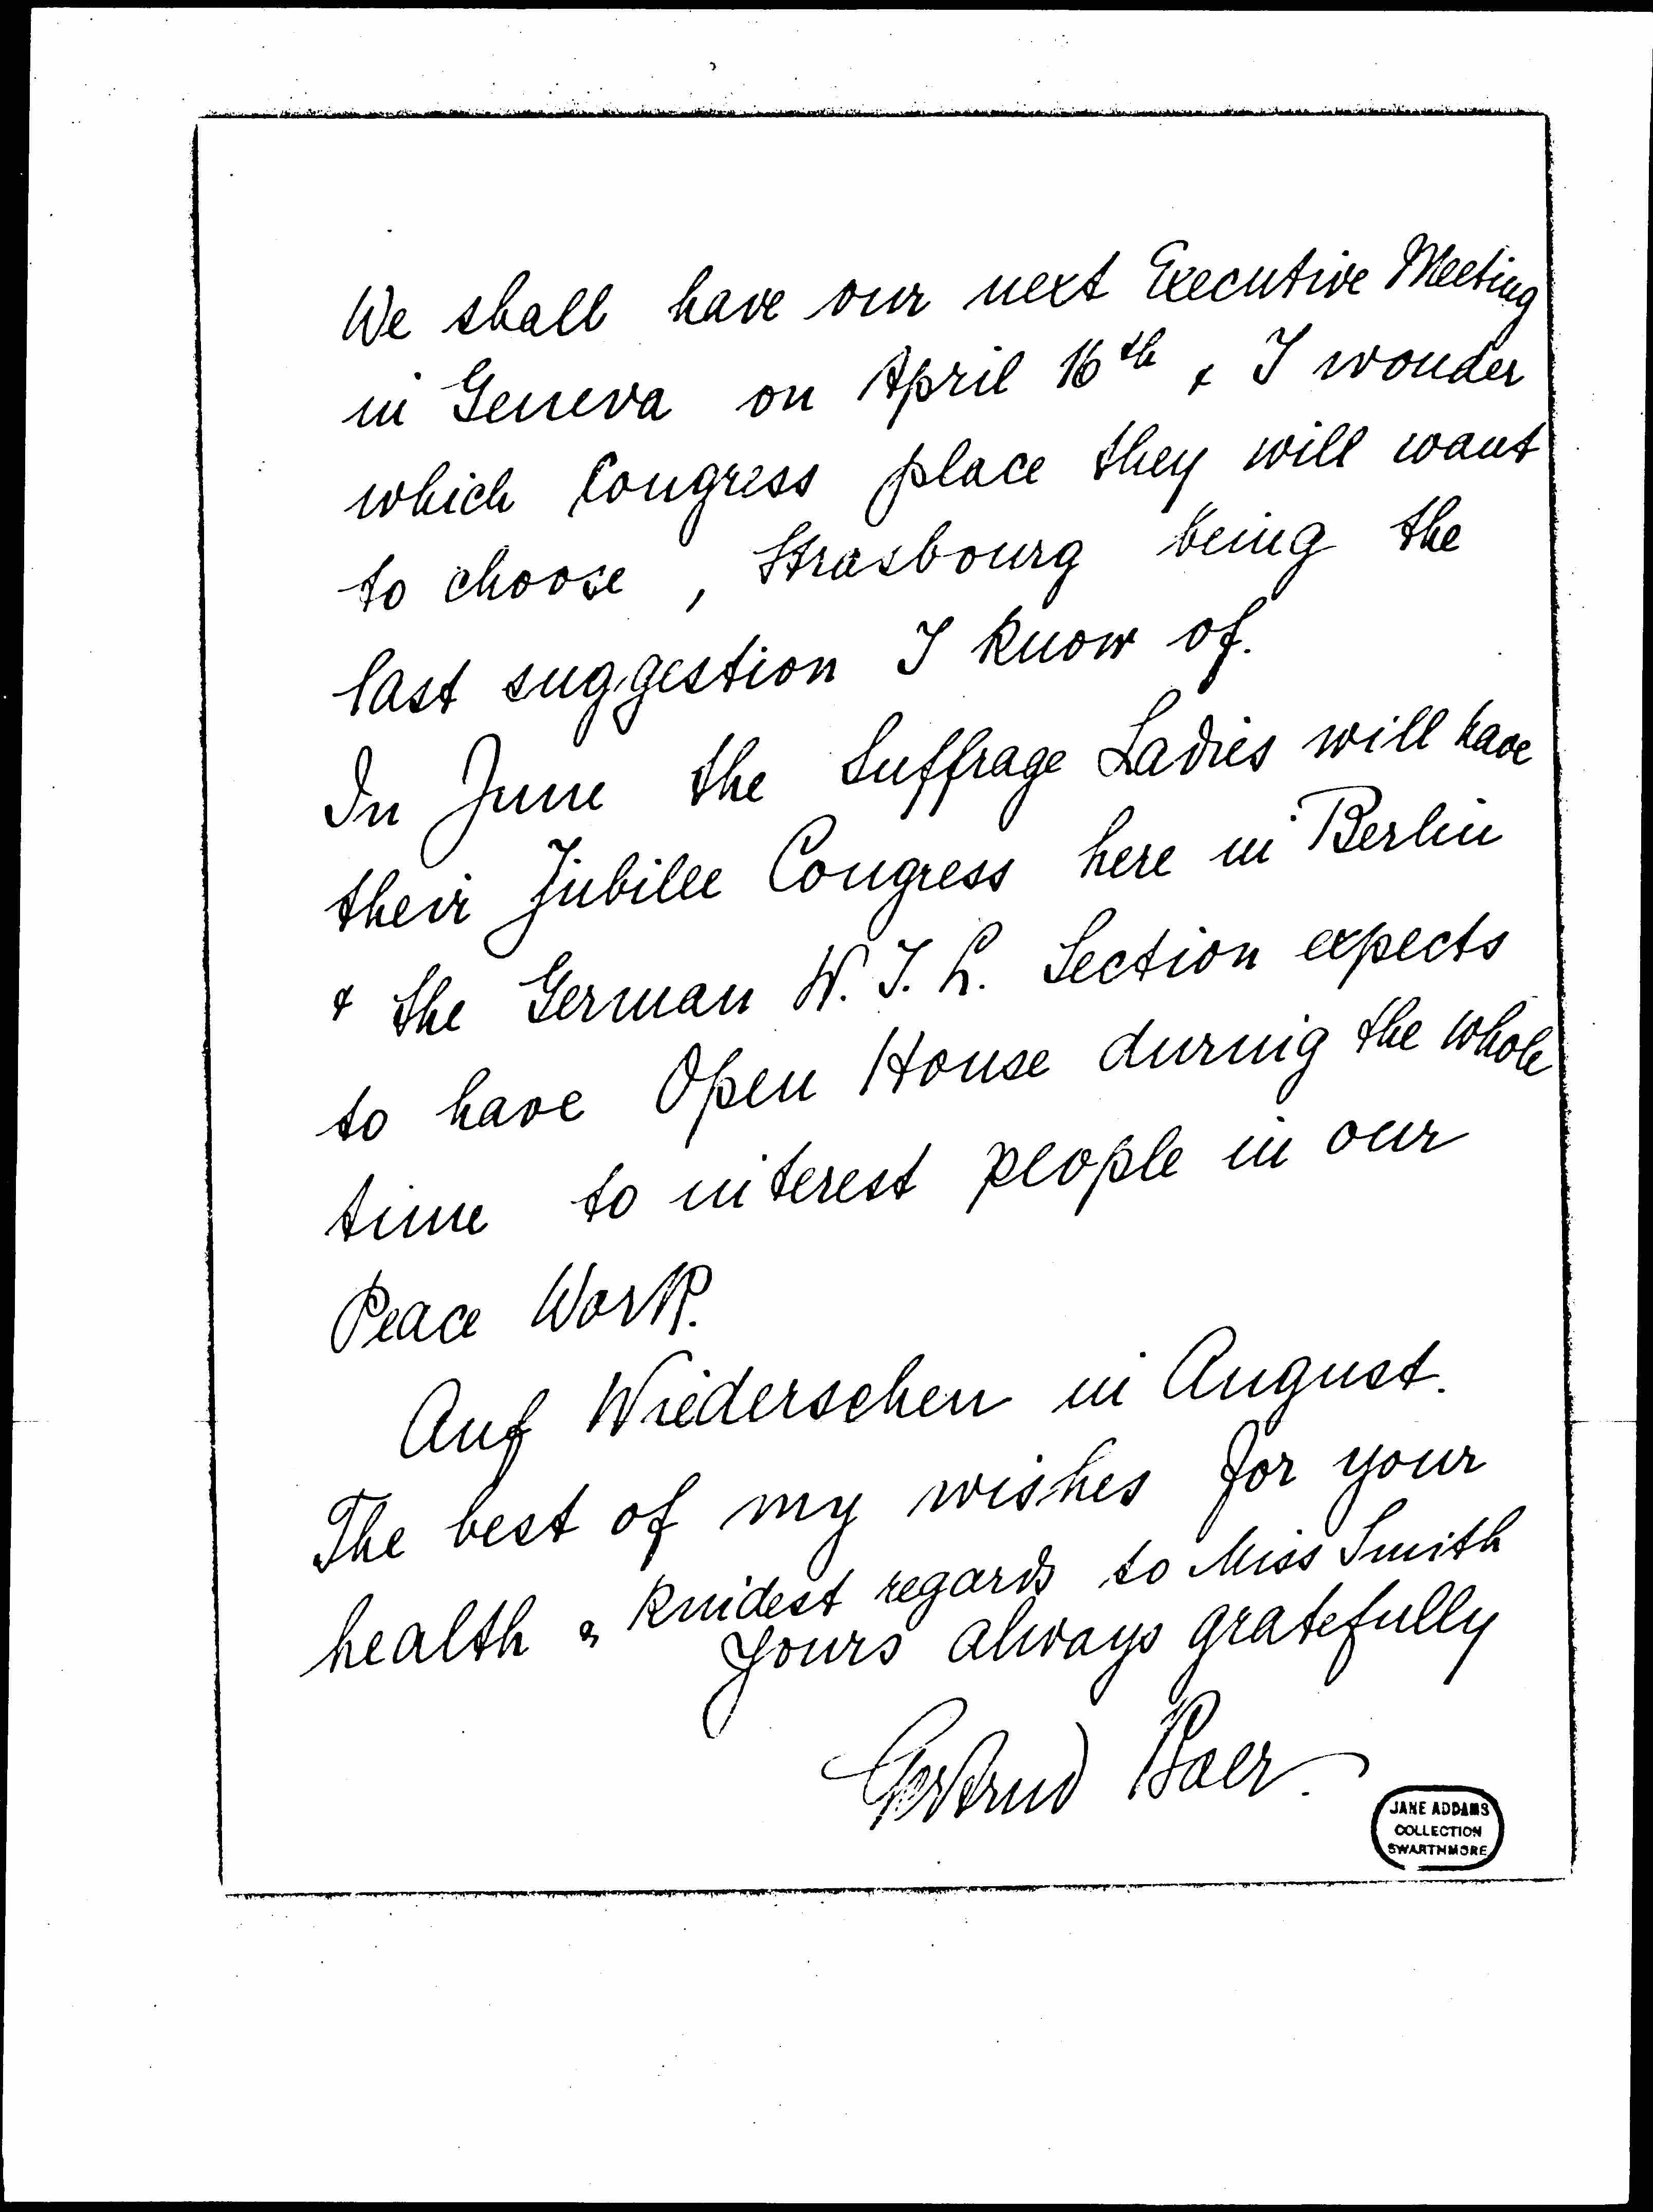 We shall have our next Executive Meeting
in Geneva on April 16th & I wonder
which Congress place they will want
to choose, Strasbourg being the
last suggestion I know of.
In June the Suffrage Ladies will have
their Jubilee Congress here in Berlin
& the German W.I.L. Section expects
to have Open House during the whole
time to interest people in our
Peace Work.
Auf Wiedersehen in August.
The best of my wishes for your
health & kindest regards to Miss Smith
Yours always gratefully
Gertrud Baer.
JANE ADDAMS
COLLECTION
SWARTHMORE